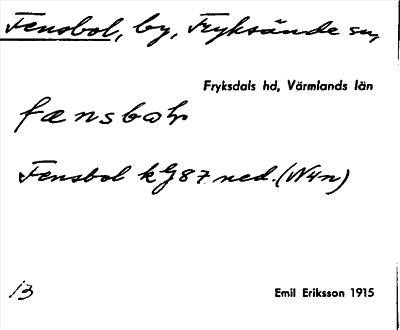 Fensbol, by, Fryksände sn,
Fryksdals hd, Värmlands län
fænsbωlr
Fensbol k G 87 ned. (N4n)
13
Emil Eriksson 1915